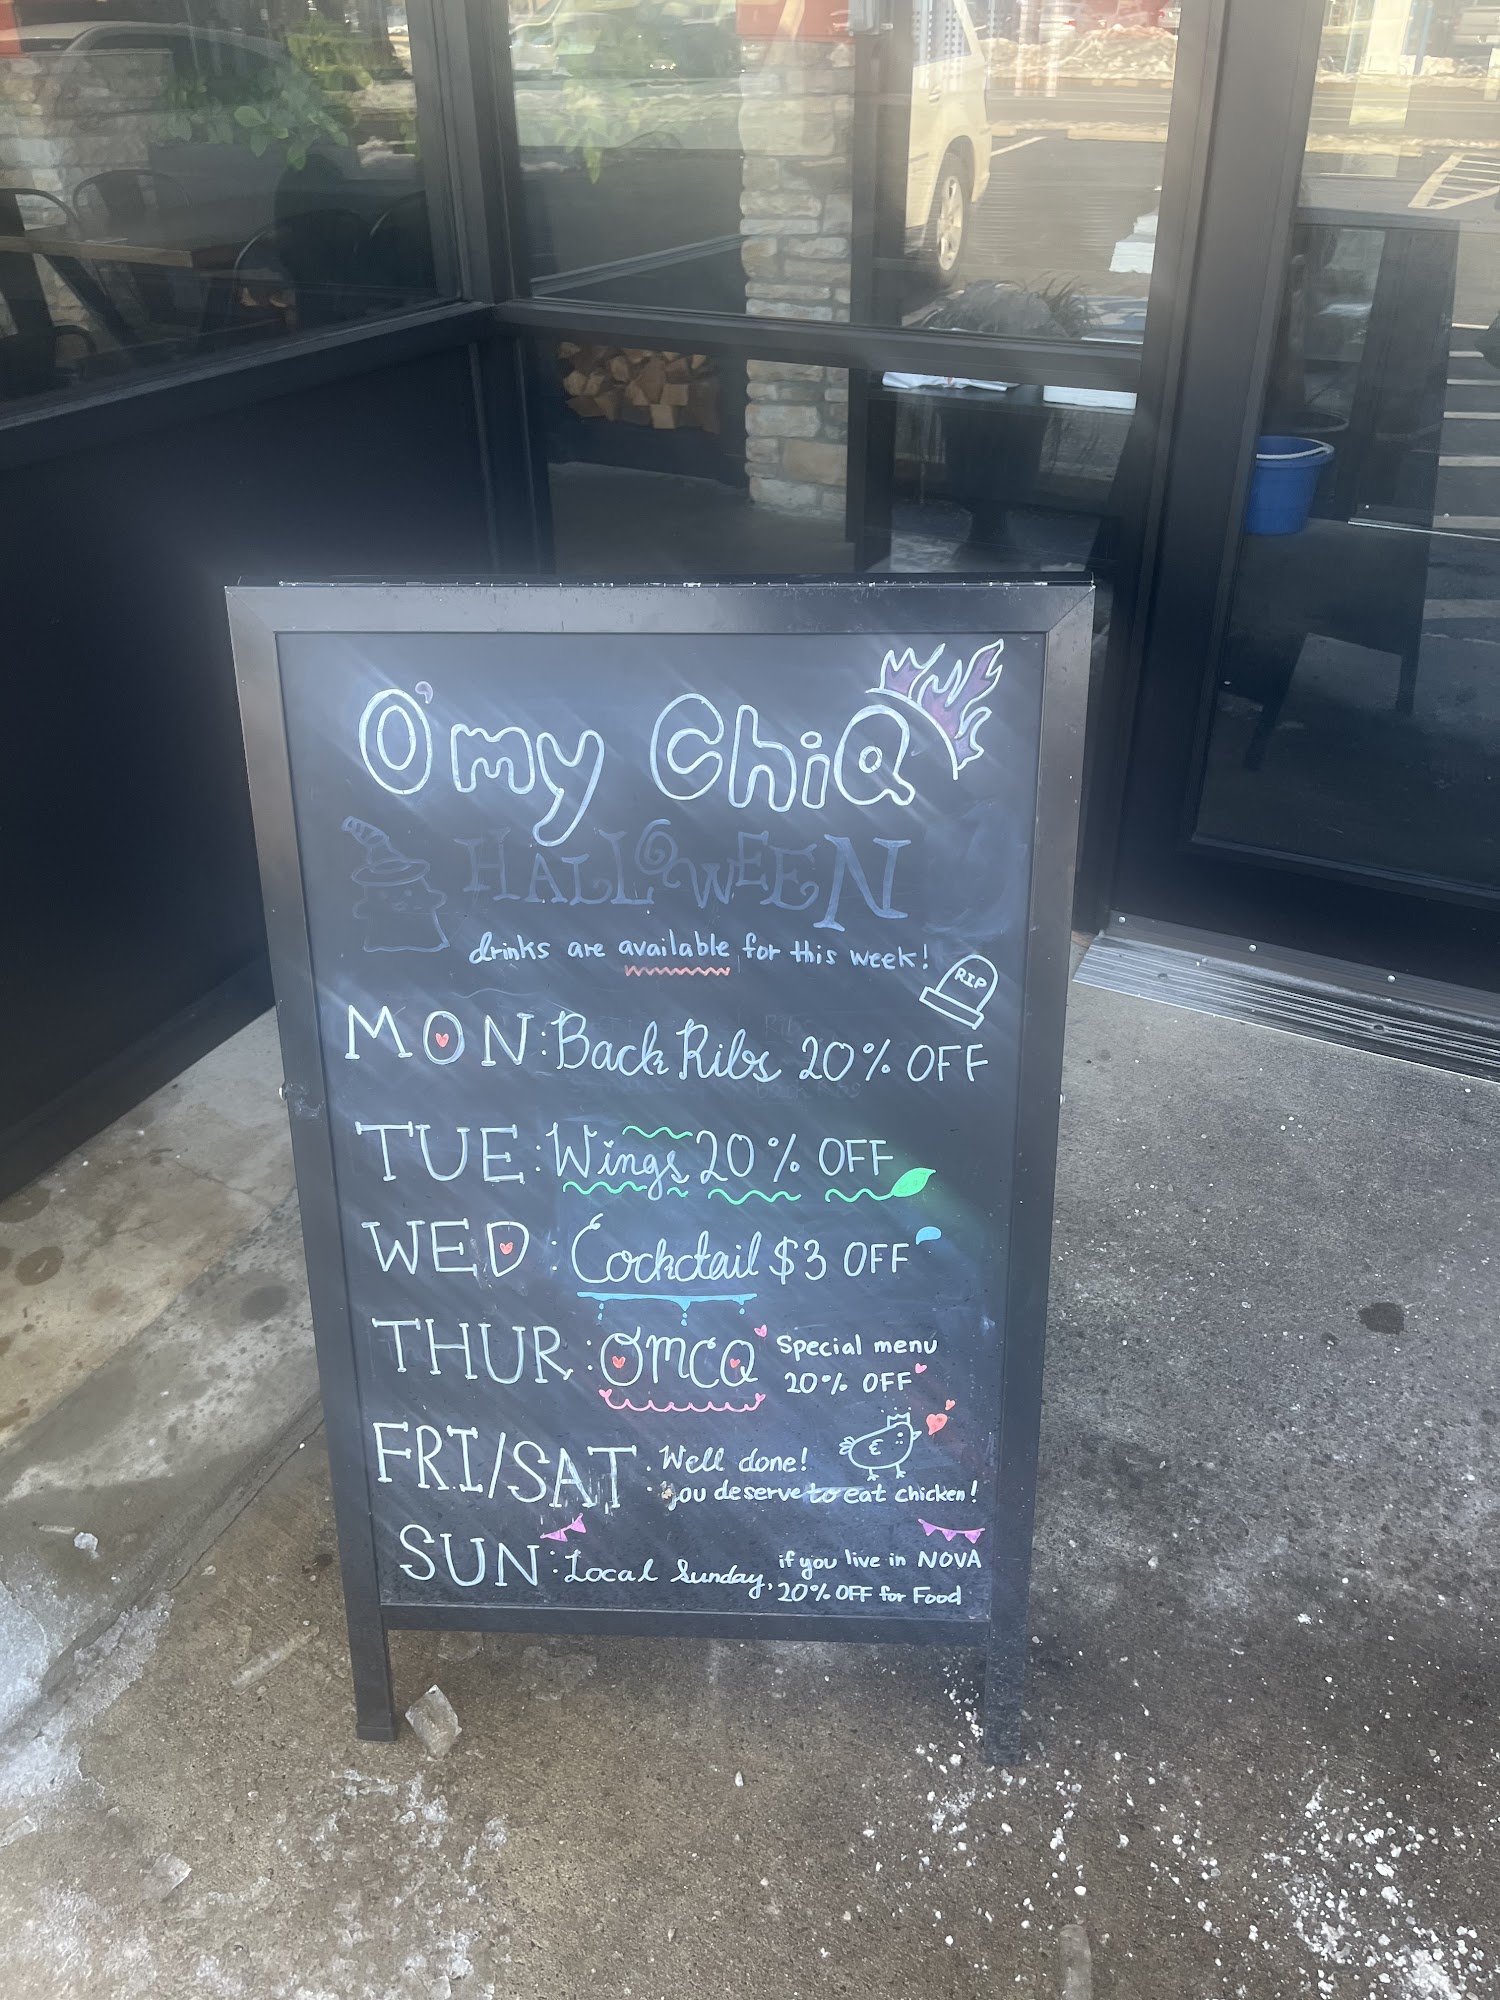 O'my ChiQ
HALLOWEEN
drinks are available for this week!
RIP
MON: Back Ribs 20% OFF
TUE: Wings 20% OFF
WED: Cocktail $3 OFF
THUR: OMCQ Special menu
20% OFF
FRI/SAT: Well done!
You deserve to eat chicken!
SUN: Local Sunday, if you live in NOVA
20% OFF for Food